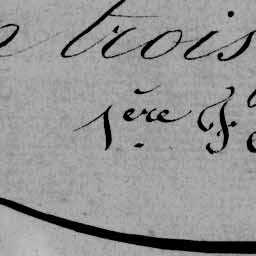 trois
1.ère F.